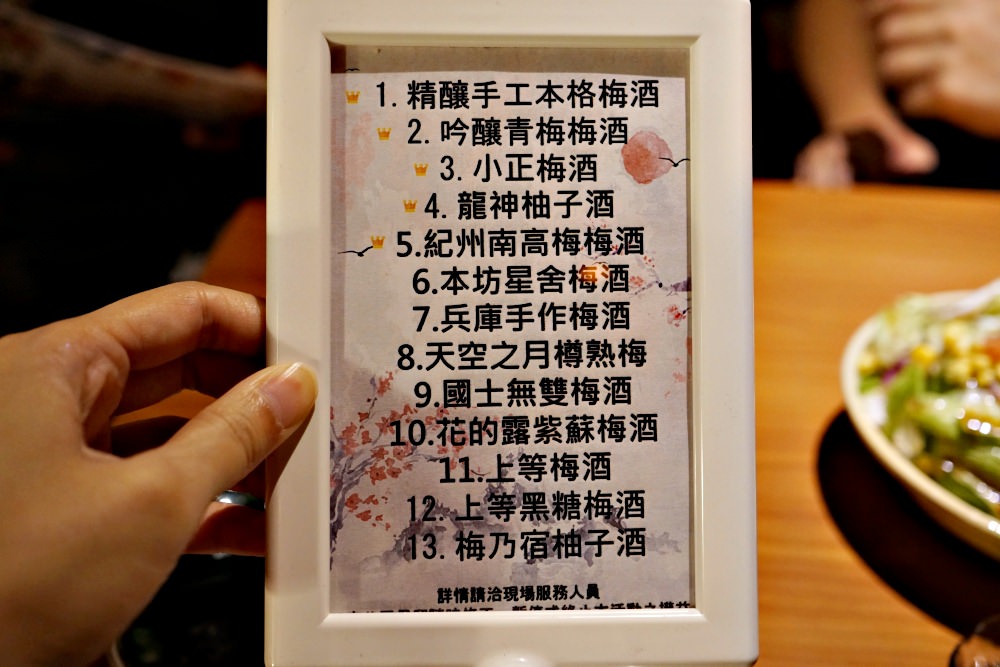 1. 精釀手工本格梅酒
2. 吟釀青梅梅酒
3. 小正梅酒
4. 龍神柚子酒
5.紀州南高梅梅酒
6.本坊星舍梅酒
7.兵庫手作梅酒
8.天空之月樽熟梅
9.國士無雙梅酒
10.花的露紫蘇梅酒
11.上等梅酒
12. 上等黑糖梅酒
13. 梅乃宿柚子酒
詳情請洽現場服務人員